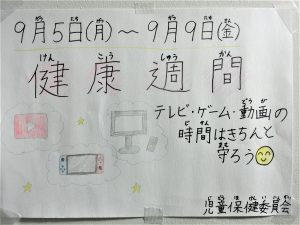 9月5日(月)～9月9日(金)
健康週間
テレビ・ゲーム・動画の
時間はきちんと
守ろう
児童保健委員会